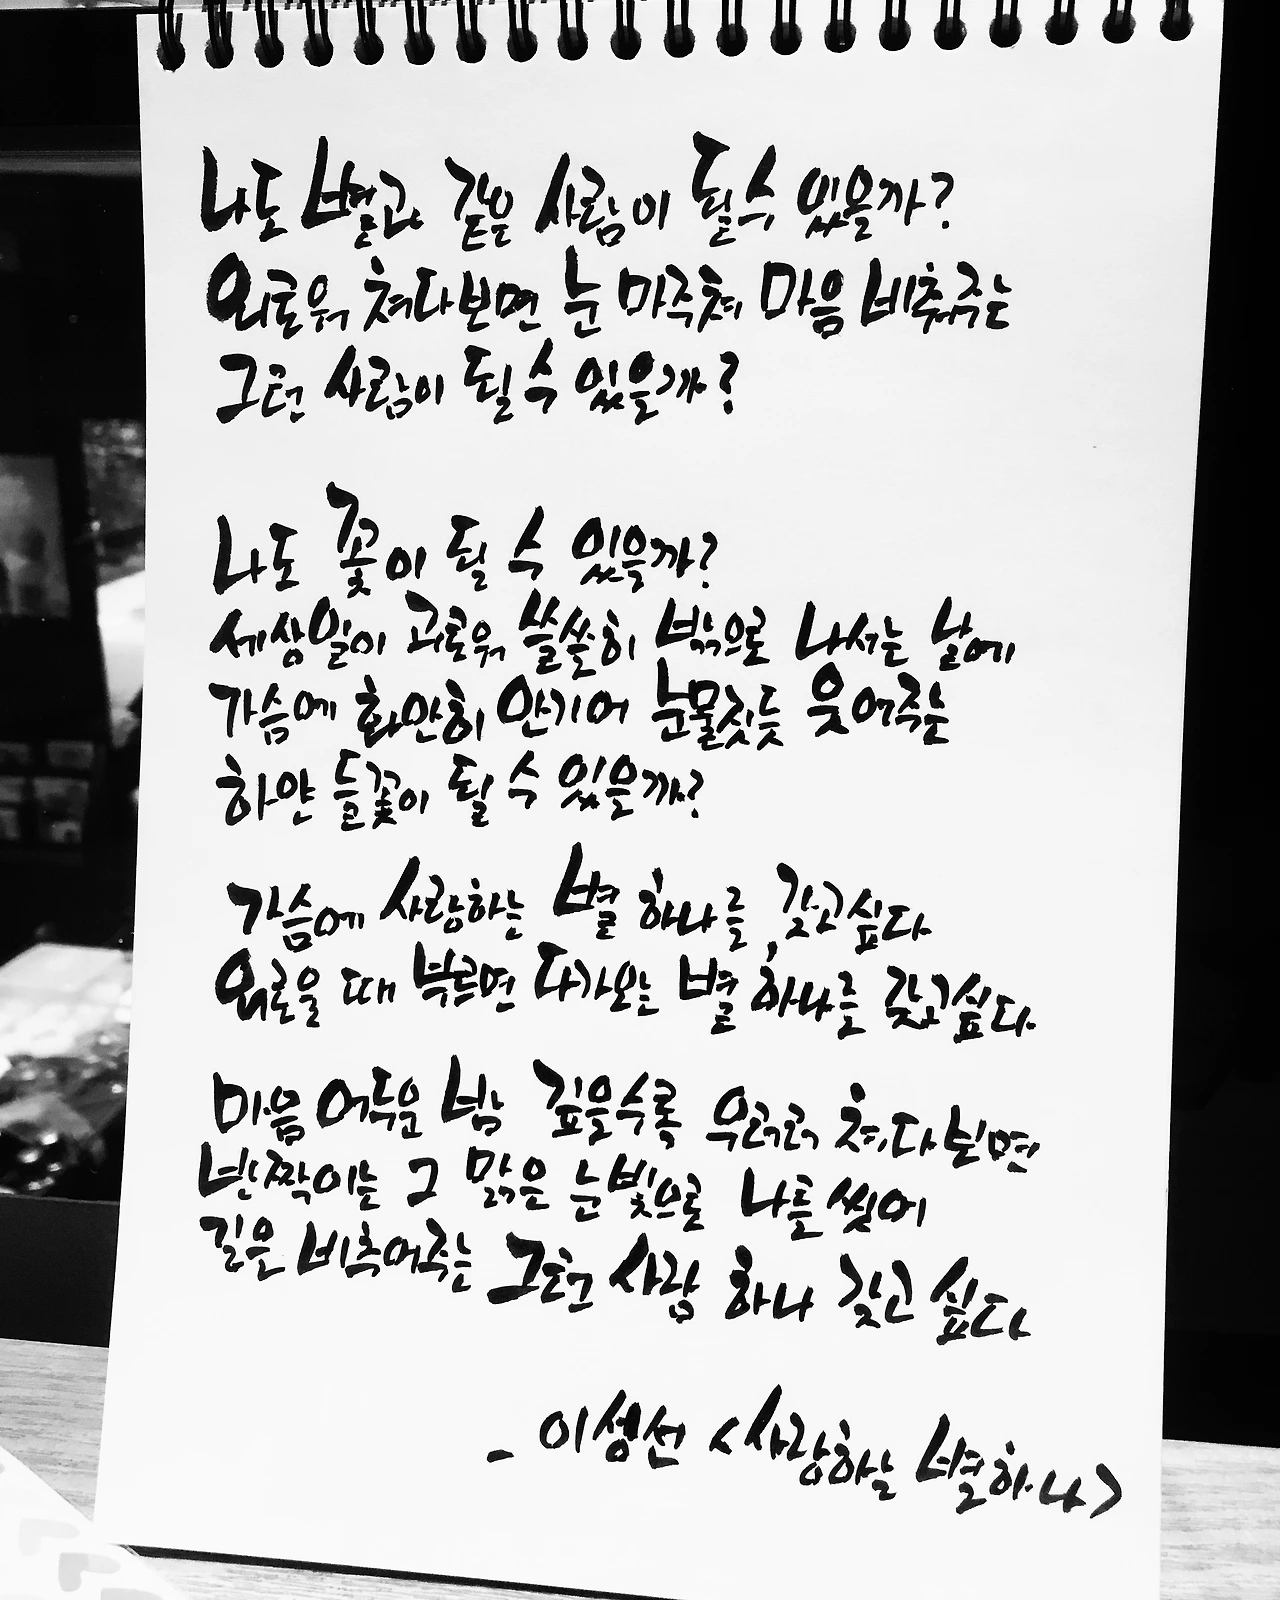 나도 별과 같은 사람이 될 수 있을까?
외로워 쳐다보면 눈 마주쳐 마음 비춰주는
그런 사람이 될 수 있을까?
나도 꽃이 될 수 있을까?
세상일이 괴로워 쓸쓸히 밖으로 나서는 날에
가슴에 화안히 안기어 눈물짓듯 웃어주는
하얀 들꽃이 될 수 있을까?
가슴에 사랑하는 별 하나를 갖고 싶다
외로울 때 부르면 다가오는 별 하나를 갖고 싶다
마음 어두운 밤 깊을수록 우러러 쳐다보면
반짝이는 그 맑은 눈빛으로 나를 씻어
길을 비추어주는 그런 사람 하나 갖고 싶다
- 이성선 <사랑하는 별 하나>